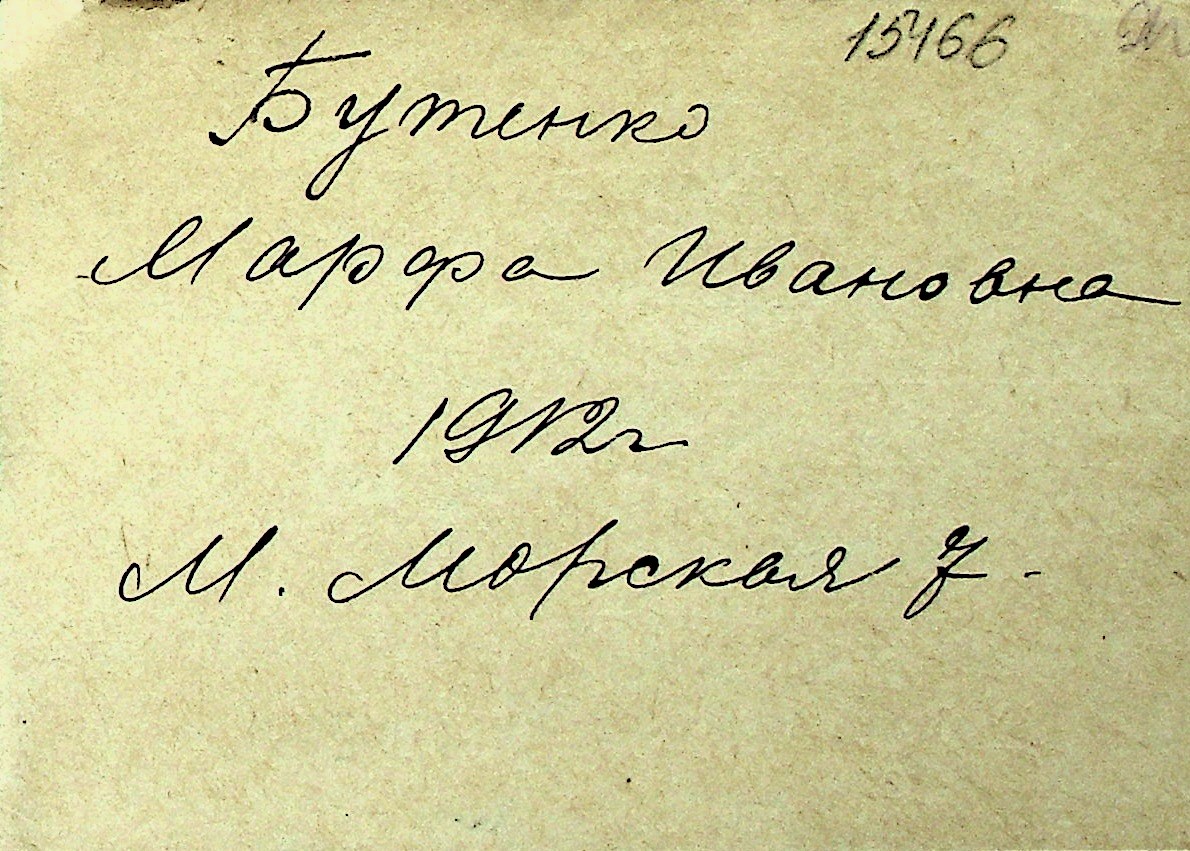 15466
Бутенко
Марфа Ивановна
1912г
М. Морская 7-